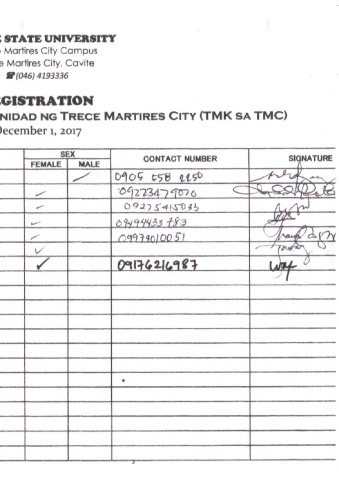 E STATE UNIVERSITY
e Martires City Campus
e Martires City, Cavite
☎(046) 4193336
EGISTRATION
NIDAD NG TRECE MARTIRES CITY (TMK SA TMC)
December 1, 2017
SEX
FEMALE MALE CONTACT NUMBER SIGNATURE
0905 558 2250
09223479020
09275415033
09494435783
09979010051
09176216987